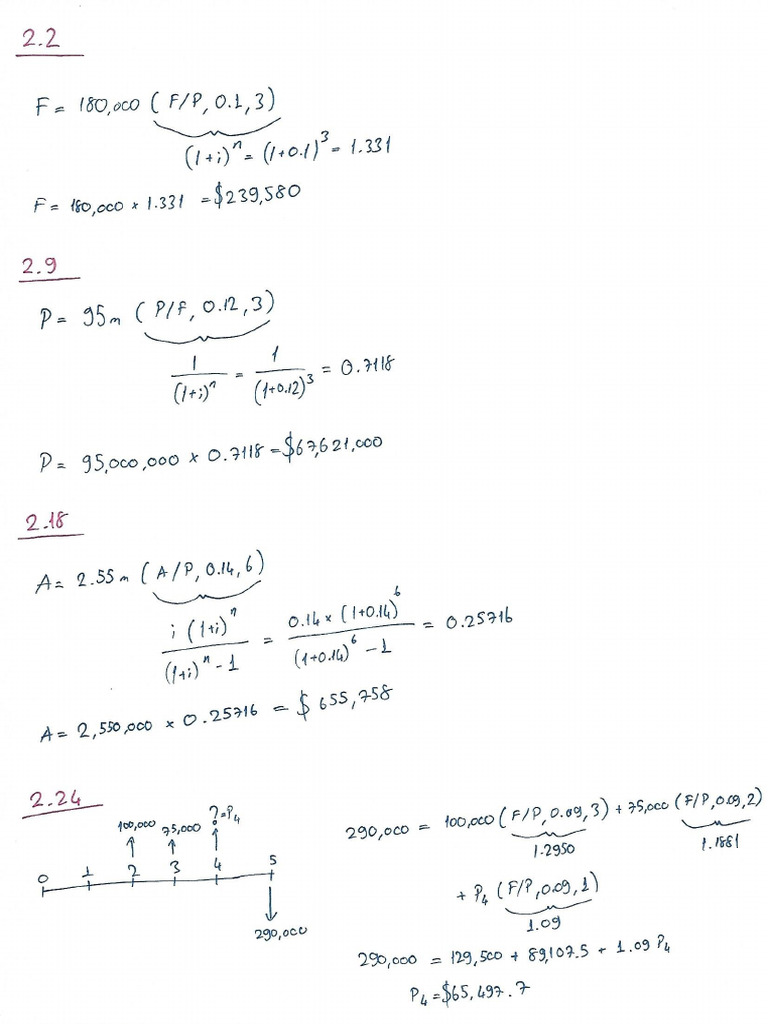 2.2
F = 180,000 ( F/P, 0.1, 3)
(1+i)^n = (1+0.1)^3 = 1.331
F = 180,000 × 1.331 = $239,580
2.9
P = 95m ( P/F, 0.12, 3)
1/(1+i)^n = 1/(1+0.12)^3 = 0.7118
P = 95,000,000 × 0.7118 = $67,621,000
2.18
A = 2.55m ( A/P, 0.14, 6)
i (1+i)^n/(1+i)^n - 1 = 0.14 × (1+0.14)^6/(1+0.14)^6 - 1 = 0.25716
A = 2,550,000 × 0.25716 = $ 655,758
2.24
100,000 75,000 ?=P4
0 1 2 3 4 5
290,000
290,000 = 100,000 (F/P, 0.09, 3) + 75,000 (F/P, 0.09, 2)
1.2950 1.1881
+ P4 (F/P, 0.09, 1)
1.09
290,000 = 129,500 + 89,107.5 + 1.09 P4
P4 = $65,497.7